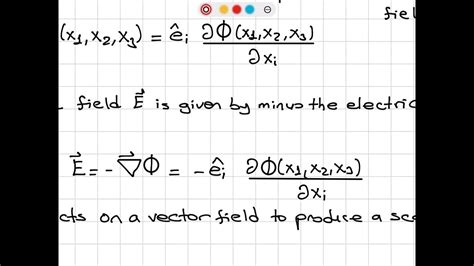 field
(x₁,x₂,x₃) = ê_i ∂Φ(x₁,x₂,x₃)/∂x_i
field E⃗ is given by minus the electric
E⃗ = -∇⃗Φ = -ê_i ∂Φ(x₁,x₂,x₃)/∂x_i
cts on a vector field to produce a sca